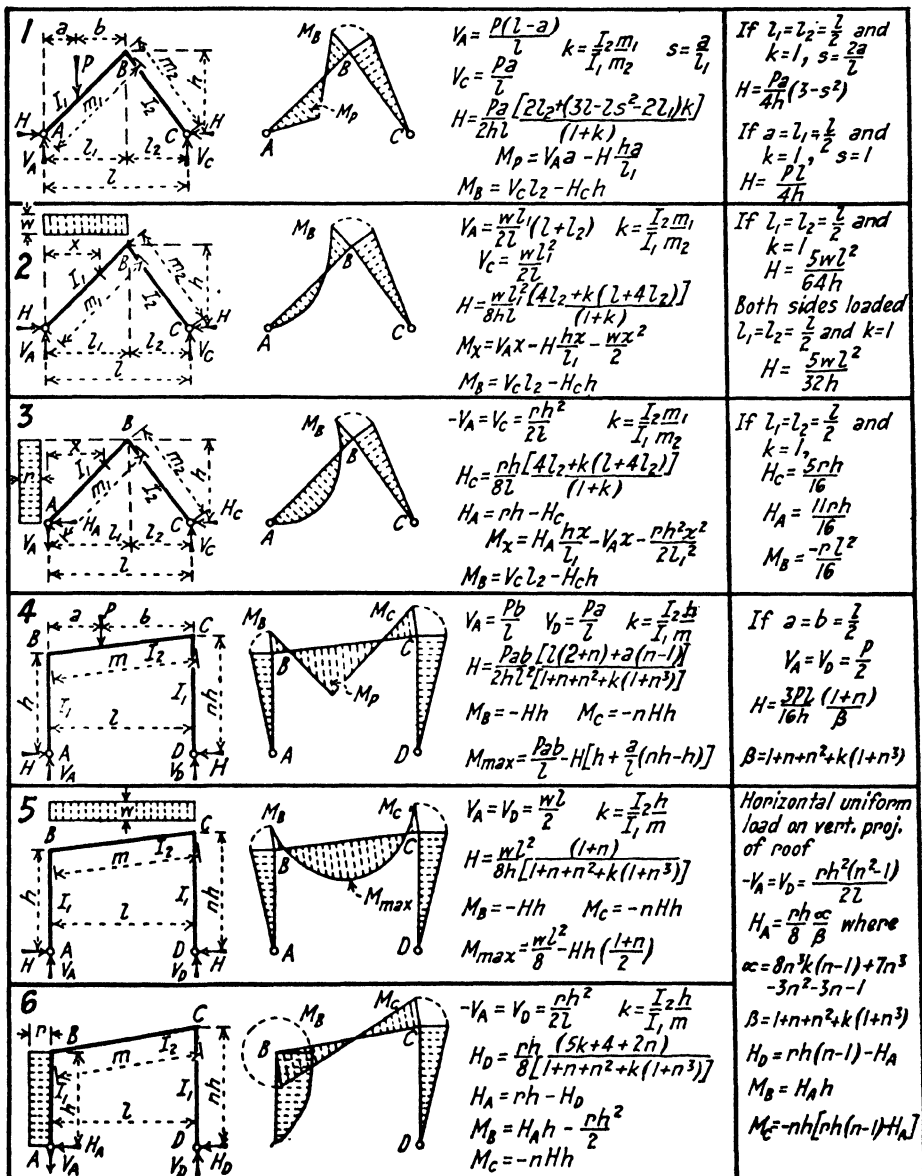 1
a b
P
B
I₁ m₁ I₂ m₂ h
H A C H
V_A l₁ l₂ V_C
l
M_B
B
M_P
A C
V_A = P(l-a)/l k = I₂m₁/I₁m₂ s = a/l₁
V_C = Pa/l
H = Pa/2hl [2l₂+(3l-ls²-2l₁)k]/(1+k)
M_P = V_A a - H ha/l₁
M_B = V_C l₂ - H_C h
If l₁=l₂=l/2 and
k=1, s=2a/l
H = Pa/4h (3-s²)
If a=l₁=l/2 and
k=1, s=1
H = Pl/4h
2
w
x
B
I₁ m₁ I₂ m₂ h
H A C H
V_A l₁ l₂ V_C
l
M_B
B
A C
V_A = wl₁/2l (l+l₂) k = I₂m₁/I₁m₂
V_C = wl₁²/2l
H = wl₁²/8hl [4l₂+k(l+4l₂)]/(1+k)
M_x = V_A x - H hx/l₁ - wx²/2
M_B = V_C l₂ - H_C h
If l₁=l₂=l/2 and
k=1
H = 5wl²/64h
Both sides loaded
l₁=l₂=l/2 and k=1
H = 5wl²/32h
3
B
x
r I₁ m₁ I₂ m₂ h
A H_A C H_C
V_A l₁ l₂ V_C
l
M_B
B
A C
-V_A = V_C = rh²/2l k = I₂m₁/I₁m₂
H_C = rh/8l [4l₂+k(l+4l₂)]/(1+k)
H_A = rh - H_C
M_x = H_A hx/l₁ - V_A x - rh²x²/2l₁²
M_B = V_C l₂ - H_C h
If l₁=l₂=l/2 and
k=1,
H_C = 5rh/16
H_A = 11rh/16
M_B = -rl²/16
4
a P b C
B m I₂
h I₁ I₁ nh
l
H A D H
V_A V_D
M_B M_C
B C
M_P
A D
V_A = Pb/l V_D = Pa/l k = I₂h/I₁m
H = Pab/2hl² [l(2+n)+a(n-1)]/[1+n+n²+k(1+n³)]
M_B = -Hh M_C = -nHh
M_max = Pab/l - H[h + a/l (nh-h)]
If a=b=l/2
V_A = V_D = P/2
H = 3Pl/16h (1+n)/β
β=1+n+n²+k(1+n³)
5
w
B C
m I₂
h I₁ I₁ nh
l
H A D H
V_A V_D
M_B M_C
B C
M_max
A D
V_A = V_D = wl/2 k = I₂h/I₁m
H = wl²/8h (1+n)/[1+n+n²+k(1+n³)]
M_B = -Hh M_C = -nHh
M_max = wl²/8 - Hh(1+n/2)
Horizontal uniform
load on vert. proj.
of roof
-V_A = V_D = rh²(n²-1)/2l
H_A = rh/8 ∝/β where
∝ = 8n³k(n-1)+7n³
-3n²-3n-1
β=1+n+n²+k(1+n³)
H_D = rh(n-1)-H_A
M_B = H_A h
M_C = -nh[rh(n-1)-H_A]
6
r B C
m I₂
I₁ h I₁ nh
l
A H_A D H_D
V_A V_D
M_B M_C
B C
D
-V_A = V_D = rh²/2l k = I₂h/I₁m
H_D = rh/8 (5k+4+2n)/[1+n+n²+k(1+n³)]
H_A = rh - H_D
M_B = H_A h - rh²/2
M_C = -nHh